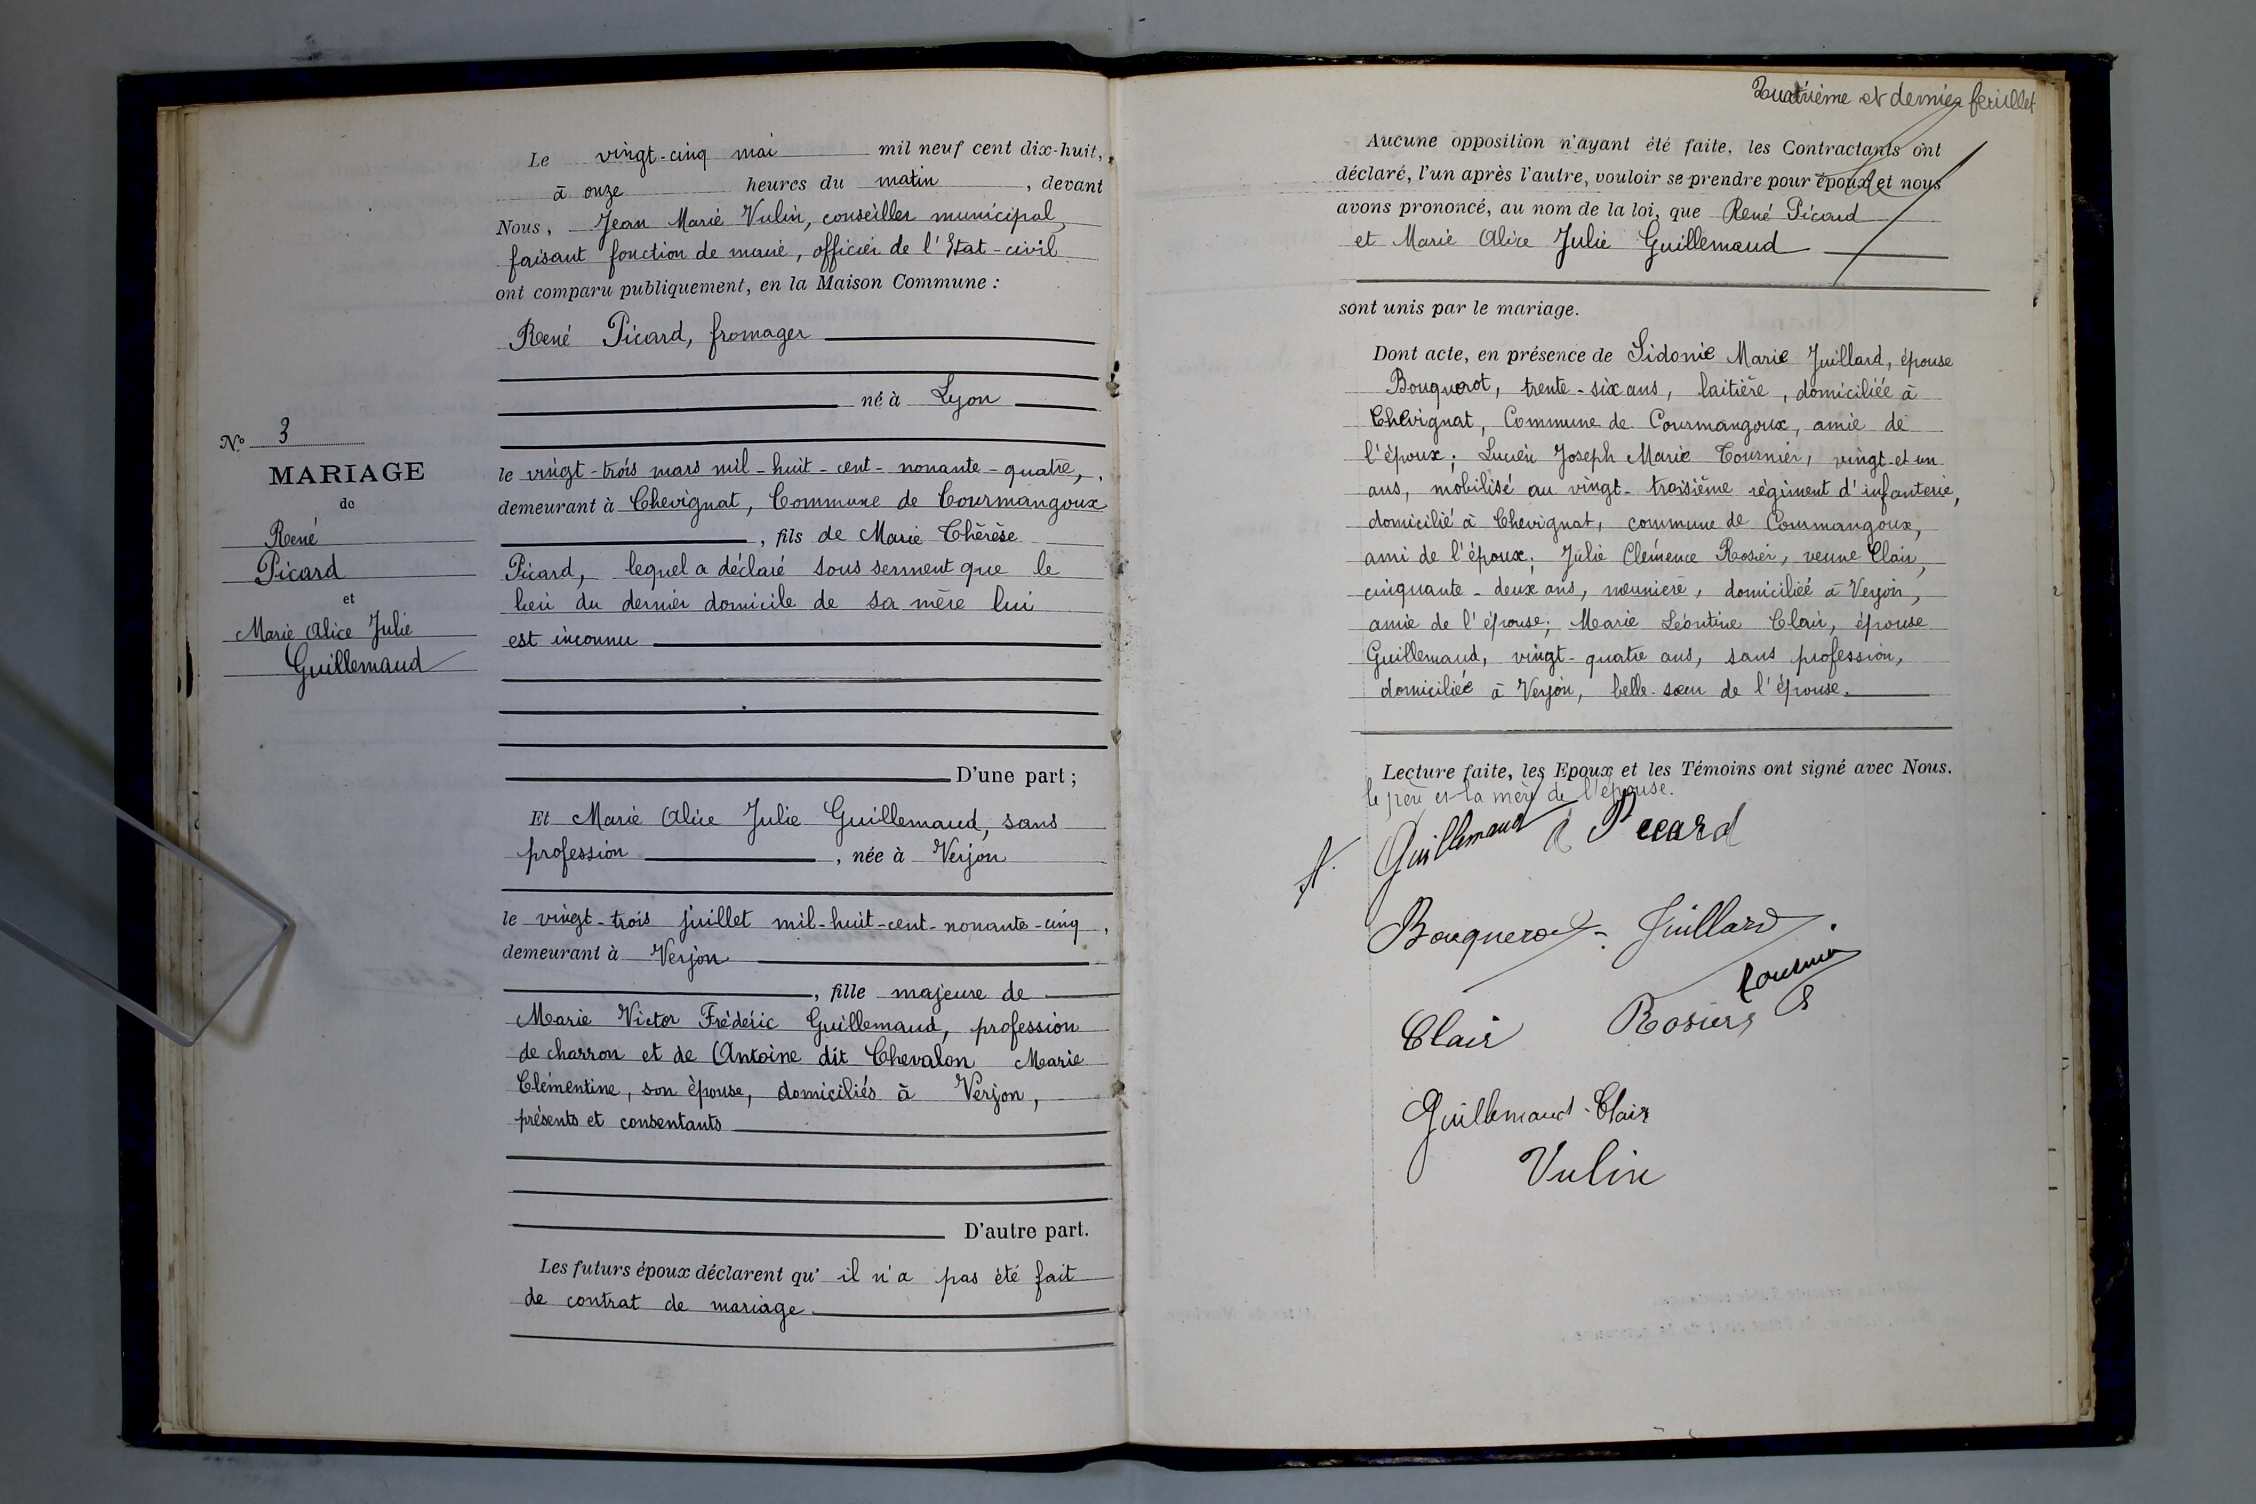 N° 3
MARIAGE
de
René
Picard
et
Marie Alice Julie
Guillemaud
Le vingt-cinq mai mil neuf cent dix-huit,
à onze heures du matin, devant
Nous, Jean Marie Vulin, conseiller municipal,
faisant fonction de maire, officier de l'Etat-civil
ont comparu publiquement, en la Maison Commune :
René Picard, fromager
né à Lyon
le vingt-trois mars mil-huit-cent-nonante-quatre,
demeurant à Chevignat, Commune de Courmangoux
, fils de Marie Thérèse
Picard, lequel a déclaré sous serment que le
lieu du dernier domicile de sa mère lui
est inconnu
D'une part ;
Et Marie Alice Julie Guillemaud, sans
profession, née à Verjon
le vingt-trois juillet mil-huit-cent-nonante-cinq,
demeurant à Verjon
, fille majeure de
Marie Victor Frédéric Guillemaud, profession
de charron et de Antoine dit Chevalon Marie
Clémentine, son épouse, domiciliés à Verjon,
présents et consentants
D'autre part.
Les futurs époux déclarent qu'il n'a pas été fait
de contrat de mariage
Quatrième et dernier feuillet
Aucune opposition n'ayant été faite, les Contractants ont
déclaré, l'un après l'autre, vouloir se prendre pour époux et nous
avons prononcé, au nom de la loi, que René Picard
et Marie Alice Julie Guillemaud
sont unis par le mariage.
Dont acte, en présence de Sidonie Marie Juillard, épouse
Bouquerot, trente-six ans, laitière, domiciliée à
Chevignat, Commune de Courmangoux, amie de
l'époux; Lucien Joseph Marie Tournier, vingt-et un
ans, mobilisé au vingt-troisième régiment d'infanterie,
domicilié à Chevignat, commune de Courmangoux,
ami de l'époux; Julie Clémence Rosier, veuve Clair,
cinquante-deux ans, meunière, domiciliée à Verjon,
amie de l'épouse; Marie Léontine Clair, épouse
Guillemaud, vingt-quatre ans, sans profession,
domiciliée à Verjon, belle-sœur de l'épouse.
Lecture faite, les Epoux et les Témoins ont signé avec Nous.
le père et la mère de l'épouse.
A. Guillemaud R Picard
Bouquerot-Juillard
Tournier
Clair Rosier
Guillemaud-Clair
Vulin